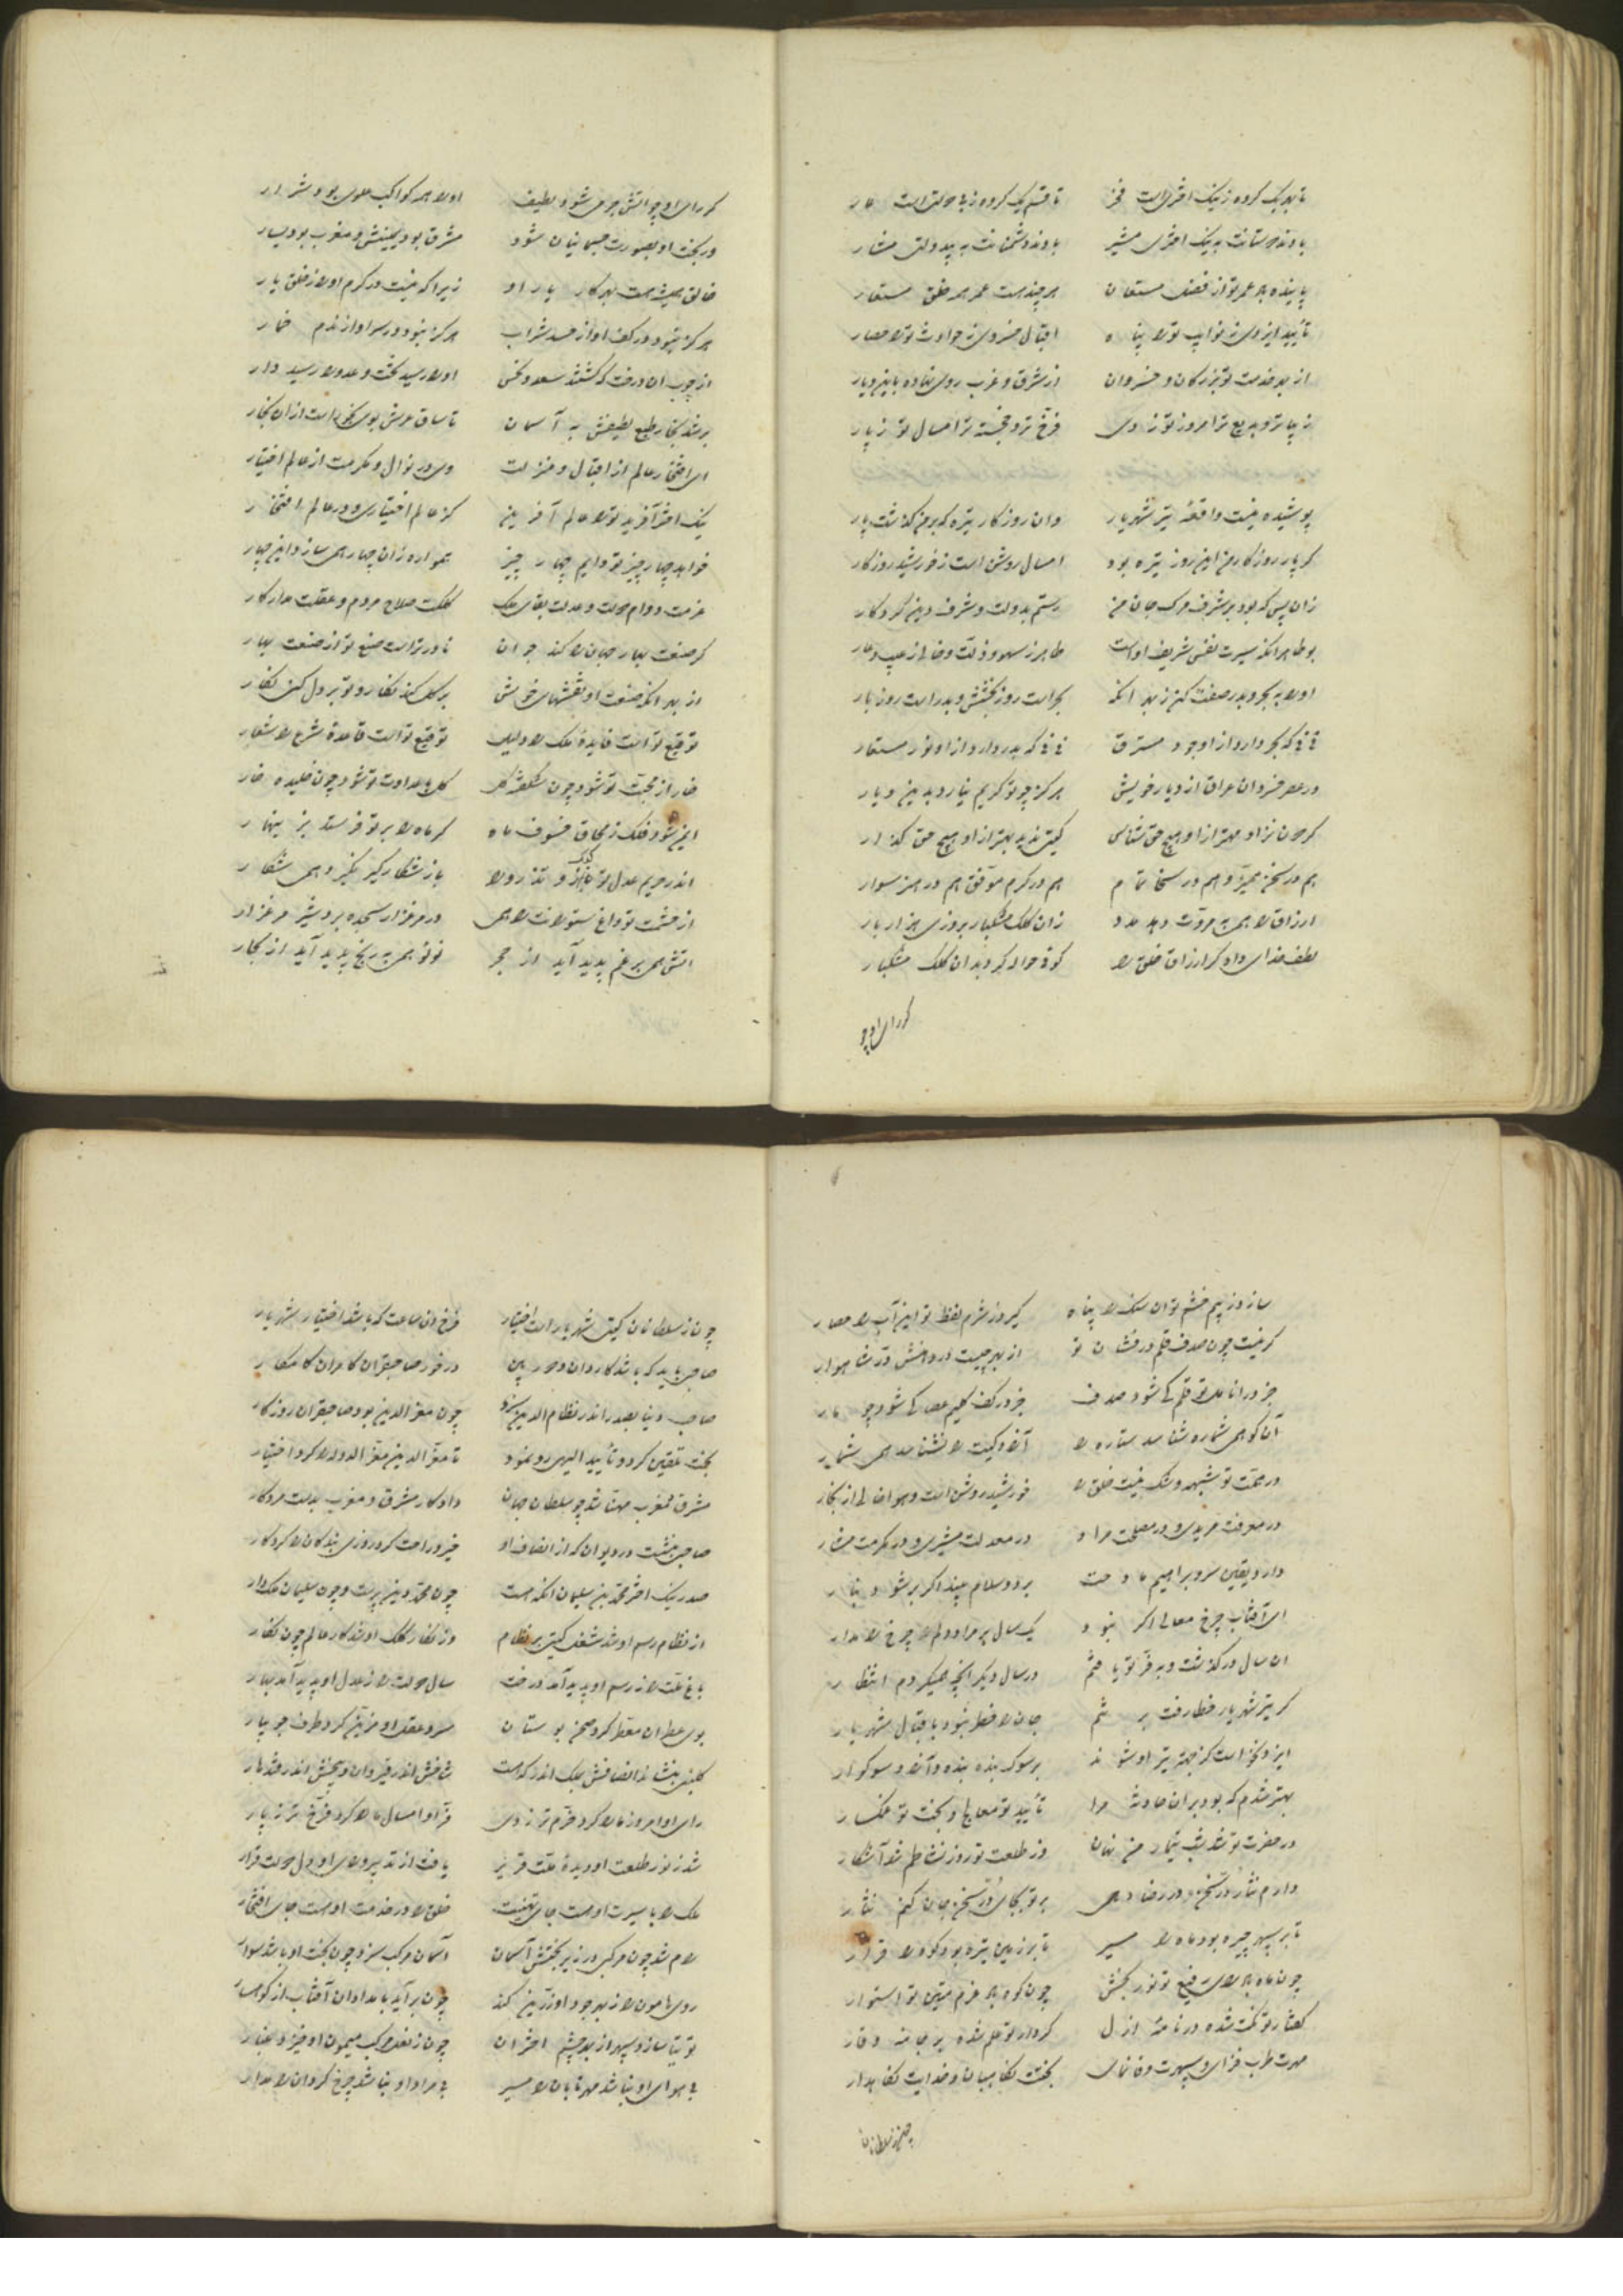 تا بهر یک گروه ز نیک اختریست فخر تا قسم یک گروه ز بی دولتیست عار
بادند دوستانت به نیک اختری مشیر بادند دشمنانت به بیدولتی مشار
پاینده باد عمر تو از فضل مستعان هر چند هست عمر همه خلق مستعار
تأیید ایزدی ز نوایب تو را پناه اقبال خسروی ز حوادث تو را حصار
از بهر خدمت تو بزرگان و خسروان از شرق و غرب روی نهاده باین دیار
زیباتر و بدیع تر امروز تو ز دی فرخ تر و خجسته تر امسال تو ز پار
پوشیده نیست واقعهٔ تیر شهریار وان روزگار تیره که بر من گذشت پار
گر پار روزگار من از تیر تیره بود امسال روشن است ز خورشید روزگار
زان پس که بود بر شرف مرگ جان من رستم بدولت و شرف دین کردگار
بوطاهر آنکه سیرت نفس شریف اوست طاهر ز سهو و زلت و خالی ز عیب و عار
او را به بحر و بدر صفت کنم ز بهر آنکه بحر است روز بخشش و بدر است روز بار
نی نی که بحر دارد از او جود مسترق نی نی که بدر دارد از او نور مستعار
در عصر خسروان عراق از دیار خویش هرگز چو تو کریم نیارد بدین دیار
گردون نزاد مهتر از او هیچ حق شناس گیتی ندید بهتر از او هیچ حق گذار
هم در سخن ممیز و هم در سخا تمام هم در کرم موفق و هم در هنر سوار
ارزاق را همی به مروت دهد مدد زان کلک مشکبار بروزی هزار بار
لطف خدای داد گر ارزاق خلق را گوئی حواله کرد بدان کلک مشکبار
گر رای او چو
گر رای او چو آتش جرمی شود لطیف او را همه کواکب علوی بود شرار
ور بخت او بصورت جسمانیان شود مشرق بود یمینش و مغرب بود یسار
خالق همیشه هست بهر کار یار او زیرا که نیست در کرم او را ز خلق یار
هرگز نبود در کف او از حسد شراب هرگز نبود در سر او از ندم خمار
از چوب آن درخت که کشتند سعد و نحس او را رسید تخت و عدو را رسید دار
بر شد بخار طبع لطیفش به آسمان تا ساق عرش بوی بخور است از آن بخار
ای افتخار عالم از اقبال و منزلت وی در نوال و مکرمت از عالم اختیار
نیک اختر آفرید تو را عالم آفرین کز عالم اختیاری و در عالم افتخار
خواهد چهار چیز تو دایم چهار چیز همواره زان چهار همی سازد این چهار
عزمت دوام دولت و عدلت بقای ملک کلکت صلاح مردم و عقلت مدار کار
گر صنعت بهار جهان را کند جوان نادرتر است صنع تو از صنعت بهار
از بهر آنکه صنعت او نقشهای خویش بر گل کند نگار و تو بر دل کنی نگار
توقیع تو است فایدهٔ ملک را دلیل توقیع تو است قاعدهٔ شرع را شعار
خار از محبت تو شود چون شکفته گل گل با عداوت تو شود چون خلیده خار
ایمن شود فلک ز محاق و خسوف ماه گر ماه را بر تو فرستد بزینهار
اندر حریم عدل تو کبک و تذرو را باز شکار گیر نگیرد همی شکار
از حشمت تو داغ ستوران را همی در مرغزار سجده برد شیر مرغزار
آتش همی بر غم پدید آید از حجر لؤلؤ همی به رنج پدید آید از بحار
سازد ز بیم خشم تو آن سنگ را پناه گیرد ز شرم لفظ تو این آب را حصار
گر نیست چون صدف قلم درفشان تو از بهر چیست در دهنش در شاهوار
جز در انامل تو قلم کی شود صدف جز در کف کلیم عصا کی شود چو مار
آن کو همی شماره شناسد ستاره را آلاء و کیت را نشناسد همی شمار
در همت تو شبهه و شک نیست خلق را خورشید روشن است و هوا خالی از بخار
در معرفت مریدی و در مصلحت مراد در معدلت مشیری و در مکرمت مشار
دارد یقین سرو براهیم مادحت برد و سلام بیند اگر بر شود بنار
ای آفتاب چرخ معالی اگر نبود یک سال بر مراد دلم چرخ را مدار
آن سال در گذشت و به فر تو یافتم در سال دیگر آنچه همیکردم انتظار
گر تیر شهریار خطا رفت بر تنم جان را خطر نبود باقبال شهریار
ایزد نخواست کز جهت تیر او شوند بر سوک بنده بنده و آزاد سوگوار
بهتر شدم که بود بر آن حادثه مرا تأیید تو معالج و بخت تو غمگسار
در حضرت تو شد شب تیمار من نهان وز طلعت تو روز نشاطم شد آشکار
دارم نثار در سخن و در رضا دهی بر تو بجای در سخن جان کنم نثار
تا بر سپهر چیره بود ماه را مسیر تا بر زمین تیره بود کوه را قرار
چون ماه باد رای رفیع تو نور بخش چون کوه باد عزم متین تو استوار
گفتار تو نکت شده در نامهٔ ازل کردار تو علم شده بر جامهٔ وقار
مهرت طرب فزای و سپهرت وفا نمای بخت نگاهبان و خدایت نگاهدار
چون ز سلطانان
چون ز سلطانان گیتی شهریار است اختیار فرخ آن صاحب که باشد اختیار شهریار
صاحبی باید که باشد کاردان و دور بین در خور صاحبقران کامران کامکار
صاحب دنیا بصدر اندر نظام الدین سزد چون معزالدین بود صاحبقران روزگار
بخت تلقین کرد و تأیید الهی رو نمود تا معزالدین معزالدوله را کرد اختیار
مشرق و مغرب مهنا شد چو سلطان جهان داد کار مشرق و مغرب بدست مرد کار
صاحبی بنشست در دیوان که از انصاف او خیر و راحت کرد روزی بندگان را کردگار
صدر نیک اختر محمد بن سلیمان آنکه هست چون محمد دین پرست و چون سلیمان ملکدار
از نظام رسم او شد شغل گیتی بر نظام وز نگار کلک او شد کار عالم چون نگار
باغ ملت را ز رسم او پدید آمد درخت سال دولت را ز عدل او پدید آمد بهار
بوی عطر آن معطر کرد صحن بوستان سرو عقل او مزین کرد طرف جویبار
گلبنی بنشاند انصافش بملک اندر که هست شاخش اندر قیروان و بیخش اندر قندهار
رای او امروز ما را کرد خرم تر ز دی فر او امسال ما را کرد فرخ تر ز پار
شد ز نور طلعت او دیدهٔ ملت قریر یافت از تدبیر و رای او دل دولت قرار
ملک را با سیرت او هست جای تهنیت خلق را در خدمت او هست جای افتخار
رام شد چون مرکبی در زیر بختش آسمان آسمان مرکب سزد چون بخت او باشد سوار
روی هامون را ز بهر جود او زرین کند چون بر آید بامدادان آفتاب از کوهسار
توتیا سازد سپهر از بهر چشم اختران چون ز نعل مرکب میمون او خیزد غبار
بی هوای او نباشد مهر تابان را مسیر بی مراد او نباشد چرخ گردان را مدار